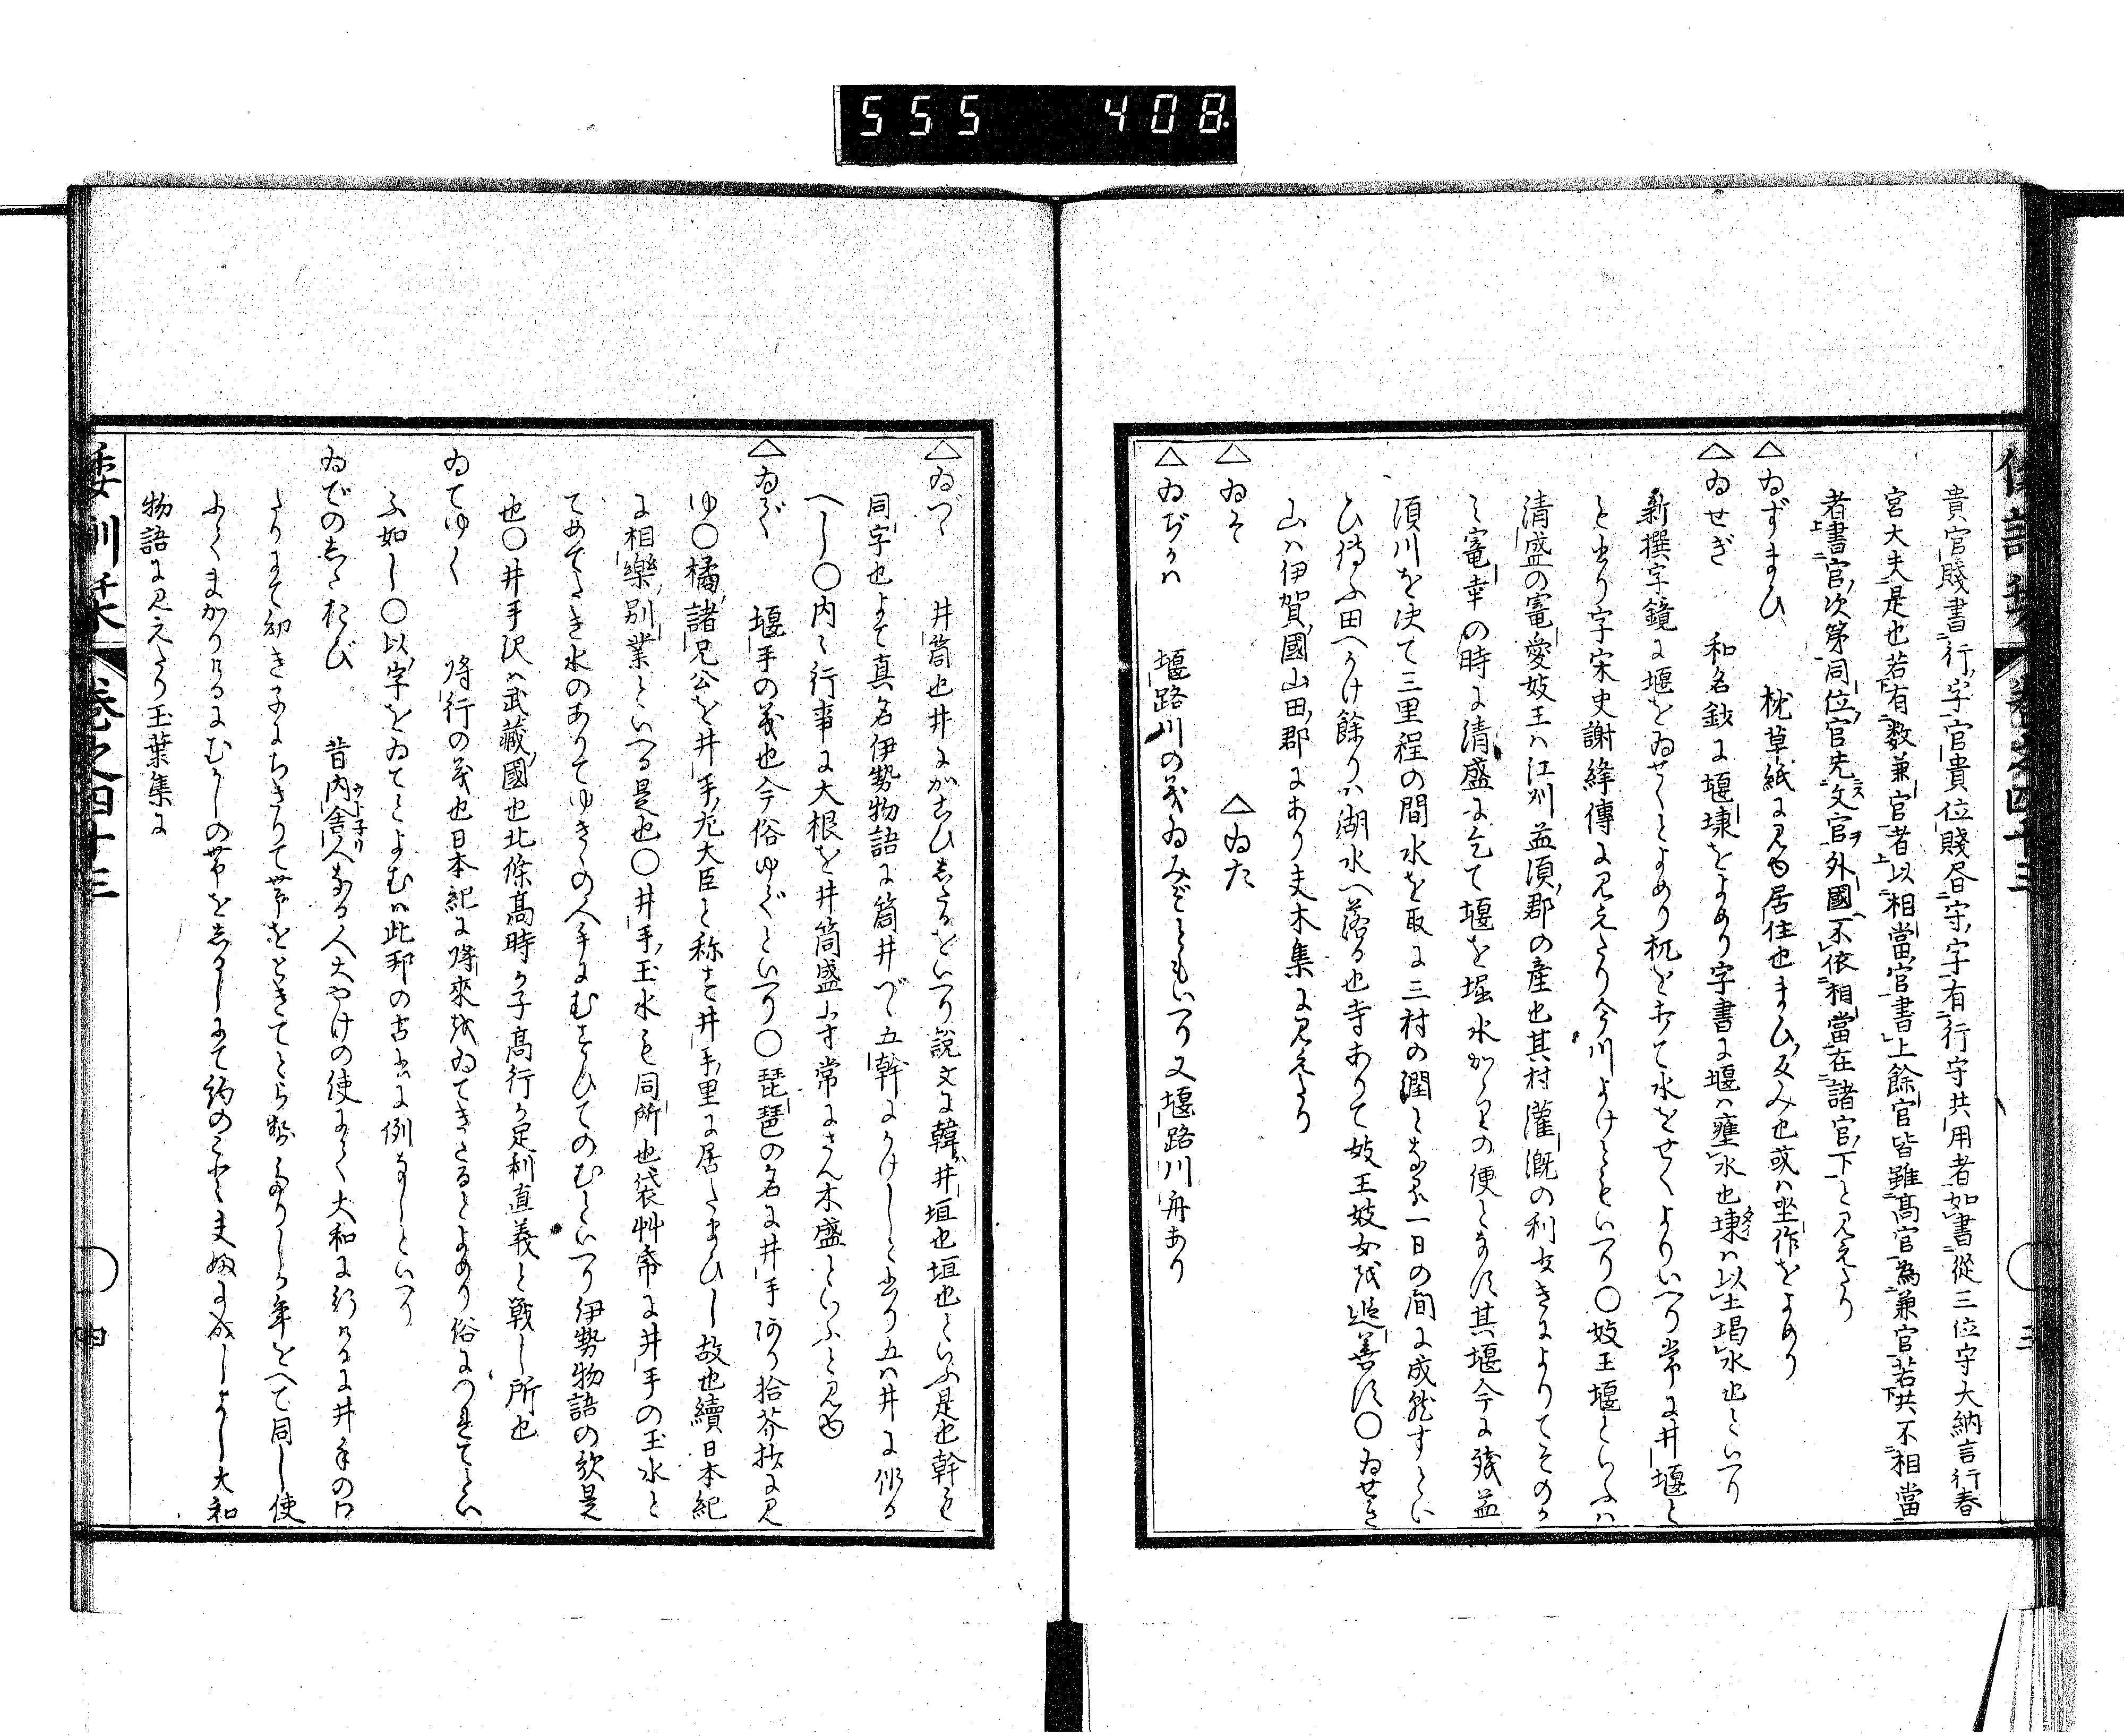 555 408.
貴官賤書行字官貴位賤書守字有行守共用者如書從三位守大納言行春
宮大夫是也若有数兼官者以相當官書上餘官皆雖髙官為兼官若共不相當
者書官次第同位官先文官外國不依相當在諸官下と見えたり
△ゐずまひ 枕草紙に見ゆ居住也まひ反み也或ハ坐作をよめり
△ゐせぎ 和名鈔に堰埭をよめり字書に堰ハ壅水也埭ハ以土堨水也といへり
新撰字鏡に堰をゐせくとよめり杭を打て水をせくよりいへり常に井堰と
も書り字宋史謝絳傳に見えたり今川よけともいへり〇妓王堰といふハ
清盛の寵愛妓王ハ江刕益須郡の産也其村灌漑の利なきによりてそのか
ミ寵幸の時に清盛に乞て堰を堀水かゝりの便となす其堰今に残益
須川を决て三里程の間水を取に三村の潤となる一日の間に成就すとい
ひ傳ふ田へかけ餘りハ湖水へ落る也寺ありて妓王妓女を追善す〇ゐせき
山ハ伊賀國山田郡にあり夫木集に見えたり
△ゐそ △ゐた
△ゐぢかハ 堰路川の義ゐみぞともいへり又堰路川舟あり
倭訓栞 巻之四十三 三
△ゐづゝ 井筒也井にかこひしたるをいへり説文に韓井垣也垣也といふ是也幹も
同字也よて真名伊勢物語に筒井づゝ五幹にかけしと書り五ハ井に似る
へし〇内々行事に大根を井筒盛小寸常にさん木盛といふと見ゆ
△ゐで 堰手の義也今俗ゆでといへり〇琵琶の名に井手あり拾芥抄に見
ゆ〇橘諸兄公を井手左大臣と称す井手里に居たまひし故也續日本紀
に相樂別業といへる是也〇井手玉水も同所也袋艸帋に井手の玉水と
てめてたき水のありてゆきゝの人手にむすひてのむといへり伊勢物語の歌是
也〇井手沢ハ武藏國也北條髙時か子髙行か足利直義と戦し所也
ゐてゆく 将行の義也日本紀に将來をゐてきたるとよめり俗につれてとい
ふ如し〇以字をゐてとよむハ此邦の古書に例なしといへり
ゐでのしたおび 昔内舎人なる人大やけの使にて大和に行けるに井手のわ
たりにて幼き子にちきりて帯をときてとら勢たりしか年をへて同し使
にてまかりけるにむかしの帯をしるしにて約のこと夫婦に成しよし大和
物語に見えたり玉葉集に
倭訓栞 巻之四十三 四